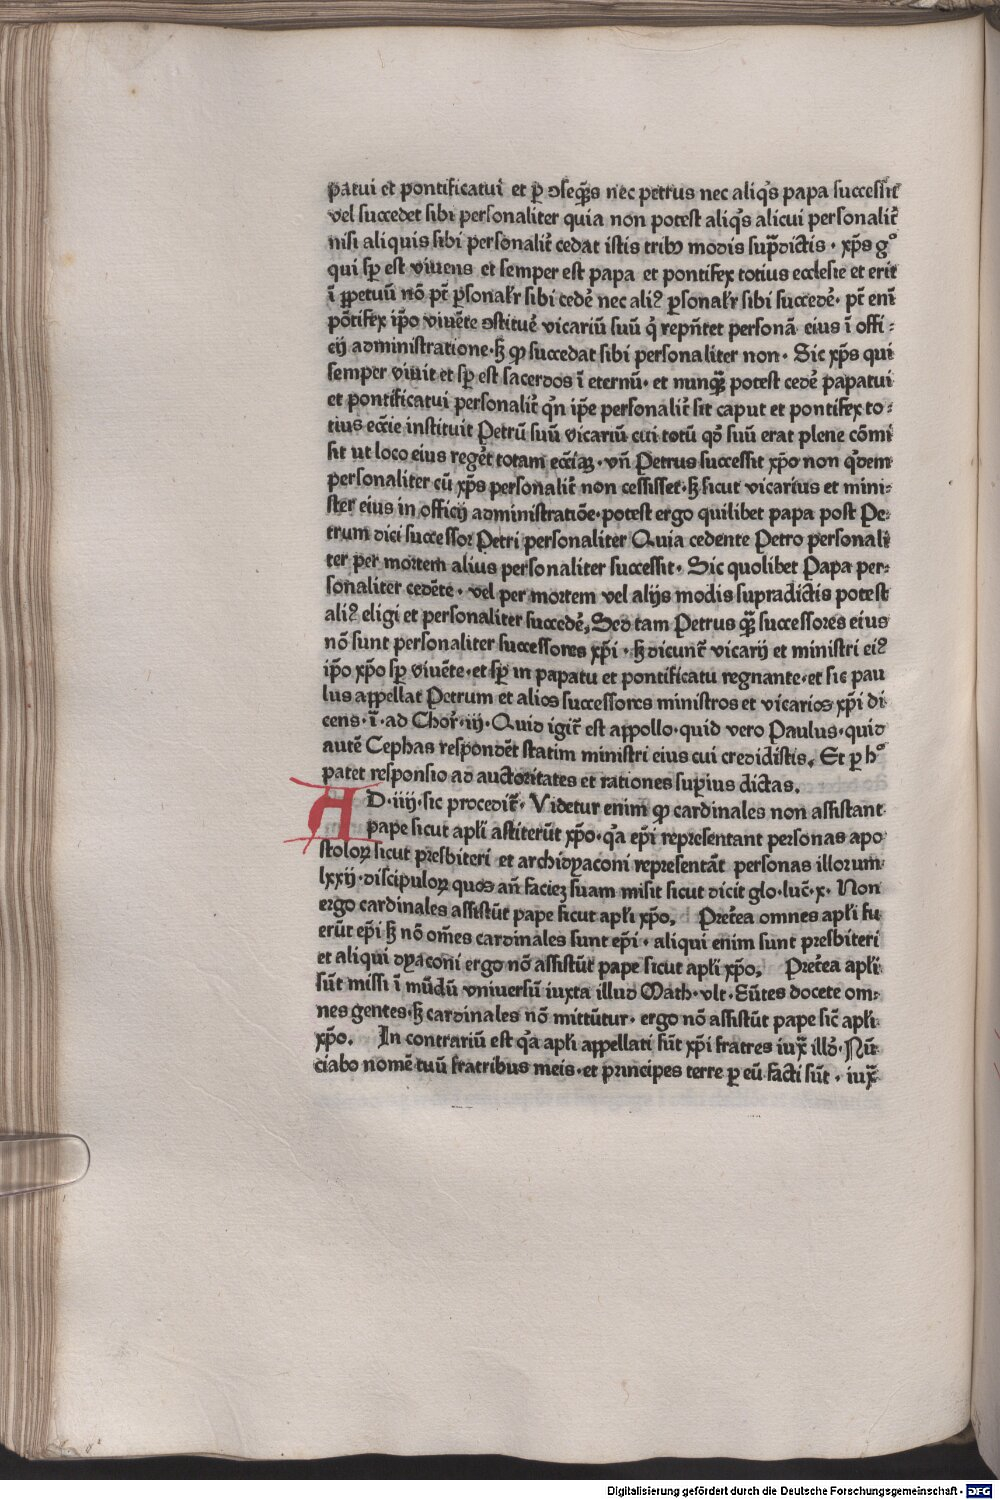 patui et pontificatui et ꝑ ↄseq̄s nec petrus nec aliq̇s papa successit
vel succedet sibi personaliter quia non potest aliq̇s alicui personalit̄
nisi aliquis sibi personalit̄ cedat istis tribꝰ modis sup̄dictis · xp̄s gͦ
qui sꝑ est viuens et semper est papa et pontifex totius ecclesie et erit
ī ꝑpetuū nō pt̄ ꝑsonalr̄ sibi cedē nec aliꝰ ꝑsonalr̄ sibi succedē· pt̄ enī
pōtifex ip̄o viuēte ↄstituē vicariū suū q̇ repn̄tet personā eius ī offi⸗
cij administratione·ſꝫ ꝙ succedat sibi personaliter non · Sic xp̄s qui
semper viuit et sꝑ est sacerdos ī eternū· et nunqꝫ potest cedē papatui
et pontificatui personalit̄ qn̄ ip̄e personalit̄ sit caput et pontifex to⸗
tius ecc̄ie instituit Petrū suū vicariū cui totū qd̄ suū erat plene cōmi
sit ut loco eius reger̄t totam ecc̄iaꝫ · vn̄ Petrus successit xp̄o non q̇dem
personaliter cū xp̄s personalit̄ non cessisset·ſꝫ sicut vicarius et mini⸗
ster eius in officij administratiōe· potest ergo quilibet papa post Pe⸗
trum dici successor Petri personaliter Quia cedente Petro personali
ter per mortem alius personaliter successit· Sic quolibet Papa per⸗
sonaliter cedēte · vel per mortem vel alijs modis supradictis potest
aliꝰ eligi et personaliter succedē, Sed tam Petrus qꝫ successores eius
nō sunt personaliter successores xp̄i · ſꝫ dicunt̄ vicarij et ministri eiꝰ
ip̄o xp̄o sꝑ viuēte·et sꝑ in papatu et pontificatu regnante·et sic pau
lus appellat Petrum et alios successores ministros et vicarios xp̄i di
cens·ī· ad Chor̄·iij·Quid igit̄ est appollo·quid vero Paulus·quid
autē Cephas respondēt statim ministri eius cui credidistis. Et ꝑ hͦ
patet responsio ad auctoritates et rationes suꝑius dictas.
AD·iiij·sic procedit̄· Videtur enim ꝙ cardinales non assistant
pape sicut apl̄i astiterūt xp̄o·q̇a ep̄i representant personas apo
stoloꝝ sicut presbiteri et archidyaconi representāt personas illorum
lxxij·discipuloꝝ quos an̄ faciez suam misit sicut dicit glo·luc̄·x· Non
ergo cardinales assistūt pape sicut apl̄i xp̄o. Pret̄ea omnes apl̄i fu
erūt ep̄i ſꝫ nō om̄es cardinales sunt ep̄i · aliqui enim sunt presbiteri
et aliqui dyaconi ergo nō assistūt pape sicut apl̄i xp̄o. Pret̄ea apl̄i
sūt missi ī mūdū vniuersū iuxta illud Math·vlt·Eūtes docete om⸗
nes gentes·ſꝫ cardinales nō mittūtur· ergo nō assistūt pape sic̄ apl̄i
xp̄o. In contrariū est q̇a apl̄i appellati sūt xp̄i fratres iux̄ illd̄·Nū
ciabo nomē tuū fratribus meis·et principes terre ꝑ eū facti sūt · iux̄
Digitalisierung gefördert durch die Deutsche Forschungsgemeinschaft · DFG